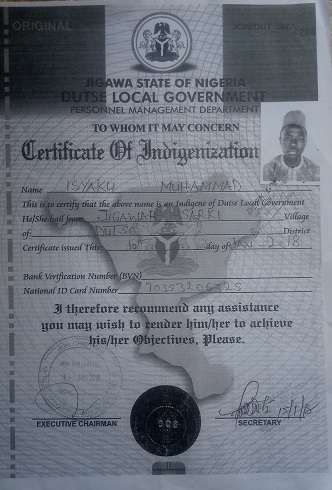 ORIGINAL
JIGAWA STATE OF NIGERIA
DUTSE LOCAL GOVERNMENT
PERSONNEL MANAGEMENT DEPARTMENT
TO WHOM IT MAY CONCERN
Certificate Of Indigenization
Name ISYAKU MUHAMMAD
This is to certify that the above name is an Indigene of Dutse Local Government
He/She hail from JIGAWAR SARKI Village
of DUTSE District
Certificate issued This day of JAN-2018
Bank Verification Number (BVN)
National ID Card Number
I therefore recommend any assistance
you may wish to render him/her to achieve
his/her Objectives, Please.
15/1/18
EXECUTIVE CHAIRMAN SECRETARY